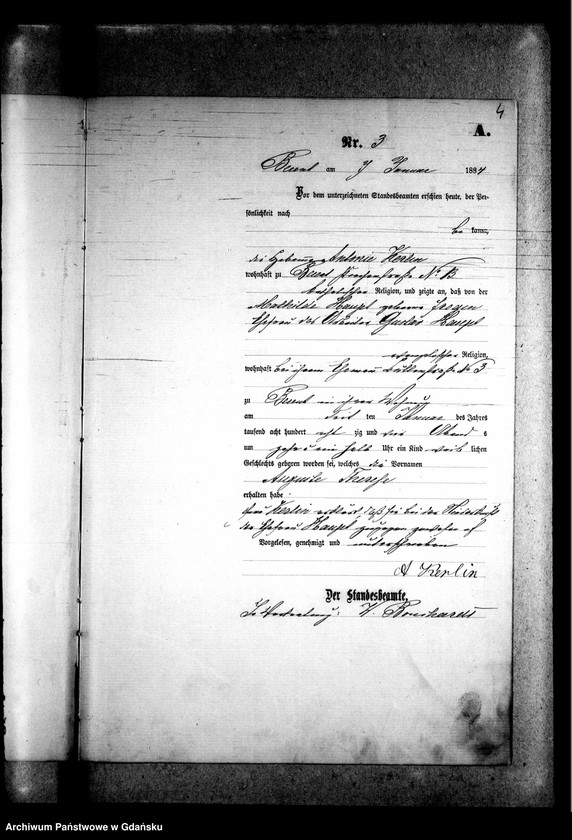 4
A.
Nr. 3
Berent am 7 Januar 1884
Vor dem unterzeichneten Standesbeamten erschien heute, der Per-
sönlichkeit nach
be kannt,
die Hebamme Antonie Kerlin
wohnhaft zu Berent No
katholischer Religion, und zeigte an, daß von der
Mathilde Haupt geborene
Ehefrau des Gustav Haupt
evangelischer Religion,
wohnhaft bei ihrem Ehemann 3
zu Berent in ihrer Wohnung
am ten Januar des Jahres
tausend acht hundert acht zig und vier Abend s
um zehn ein halb Uhr ein Kind weib lichen
Geschlechts geboren worden sei, welches die Vornamen
Auguste Therese
erhalten habe
Frau Kerlin erklärt, daß sie bei der Niederkunft
der Ehefrau Haupt zugegen gewesen ist
Vorgelesen, genehmigt und unterschrieben
A Kerlin
Der Standesbeamte.
In Vertretung:
Archiwum Państwowe w Gdańsku